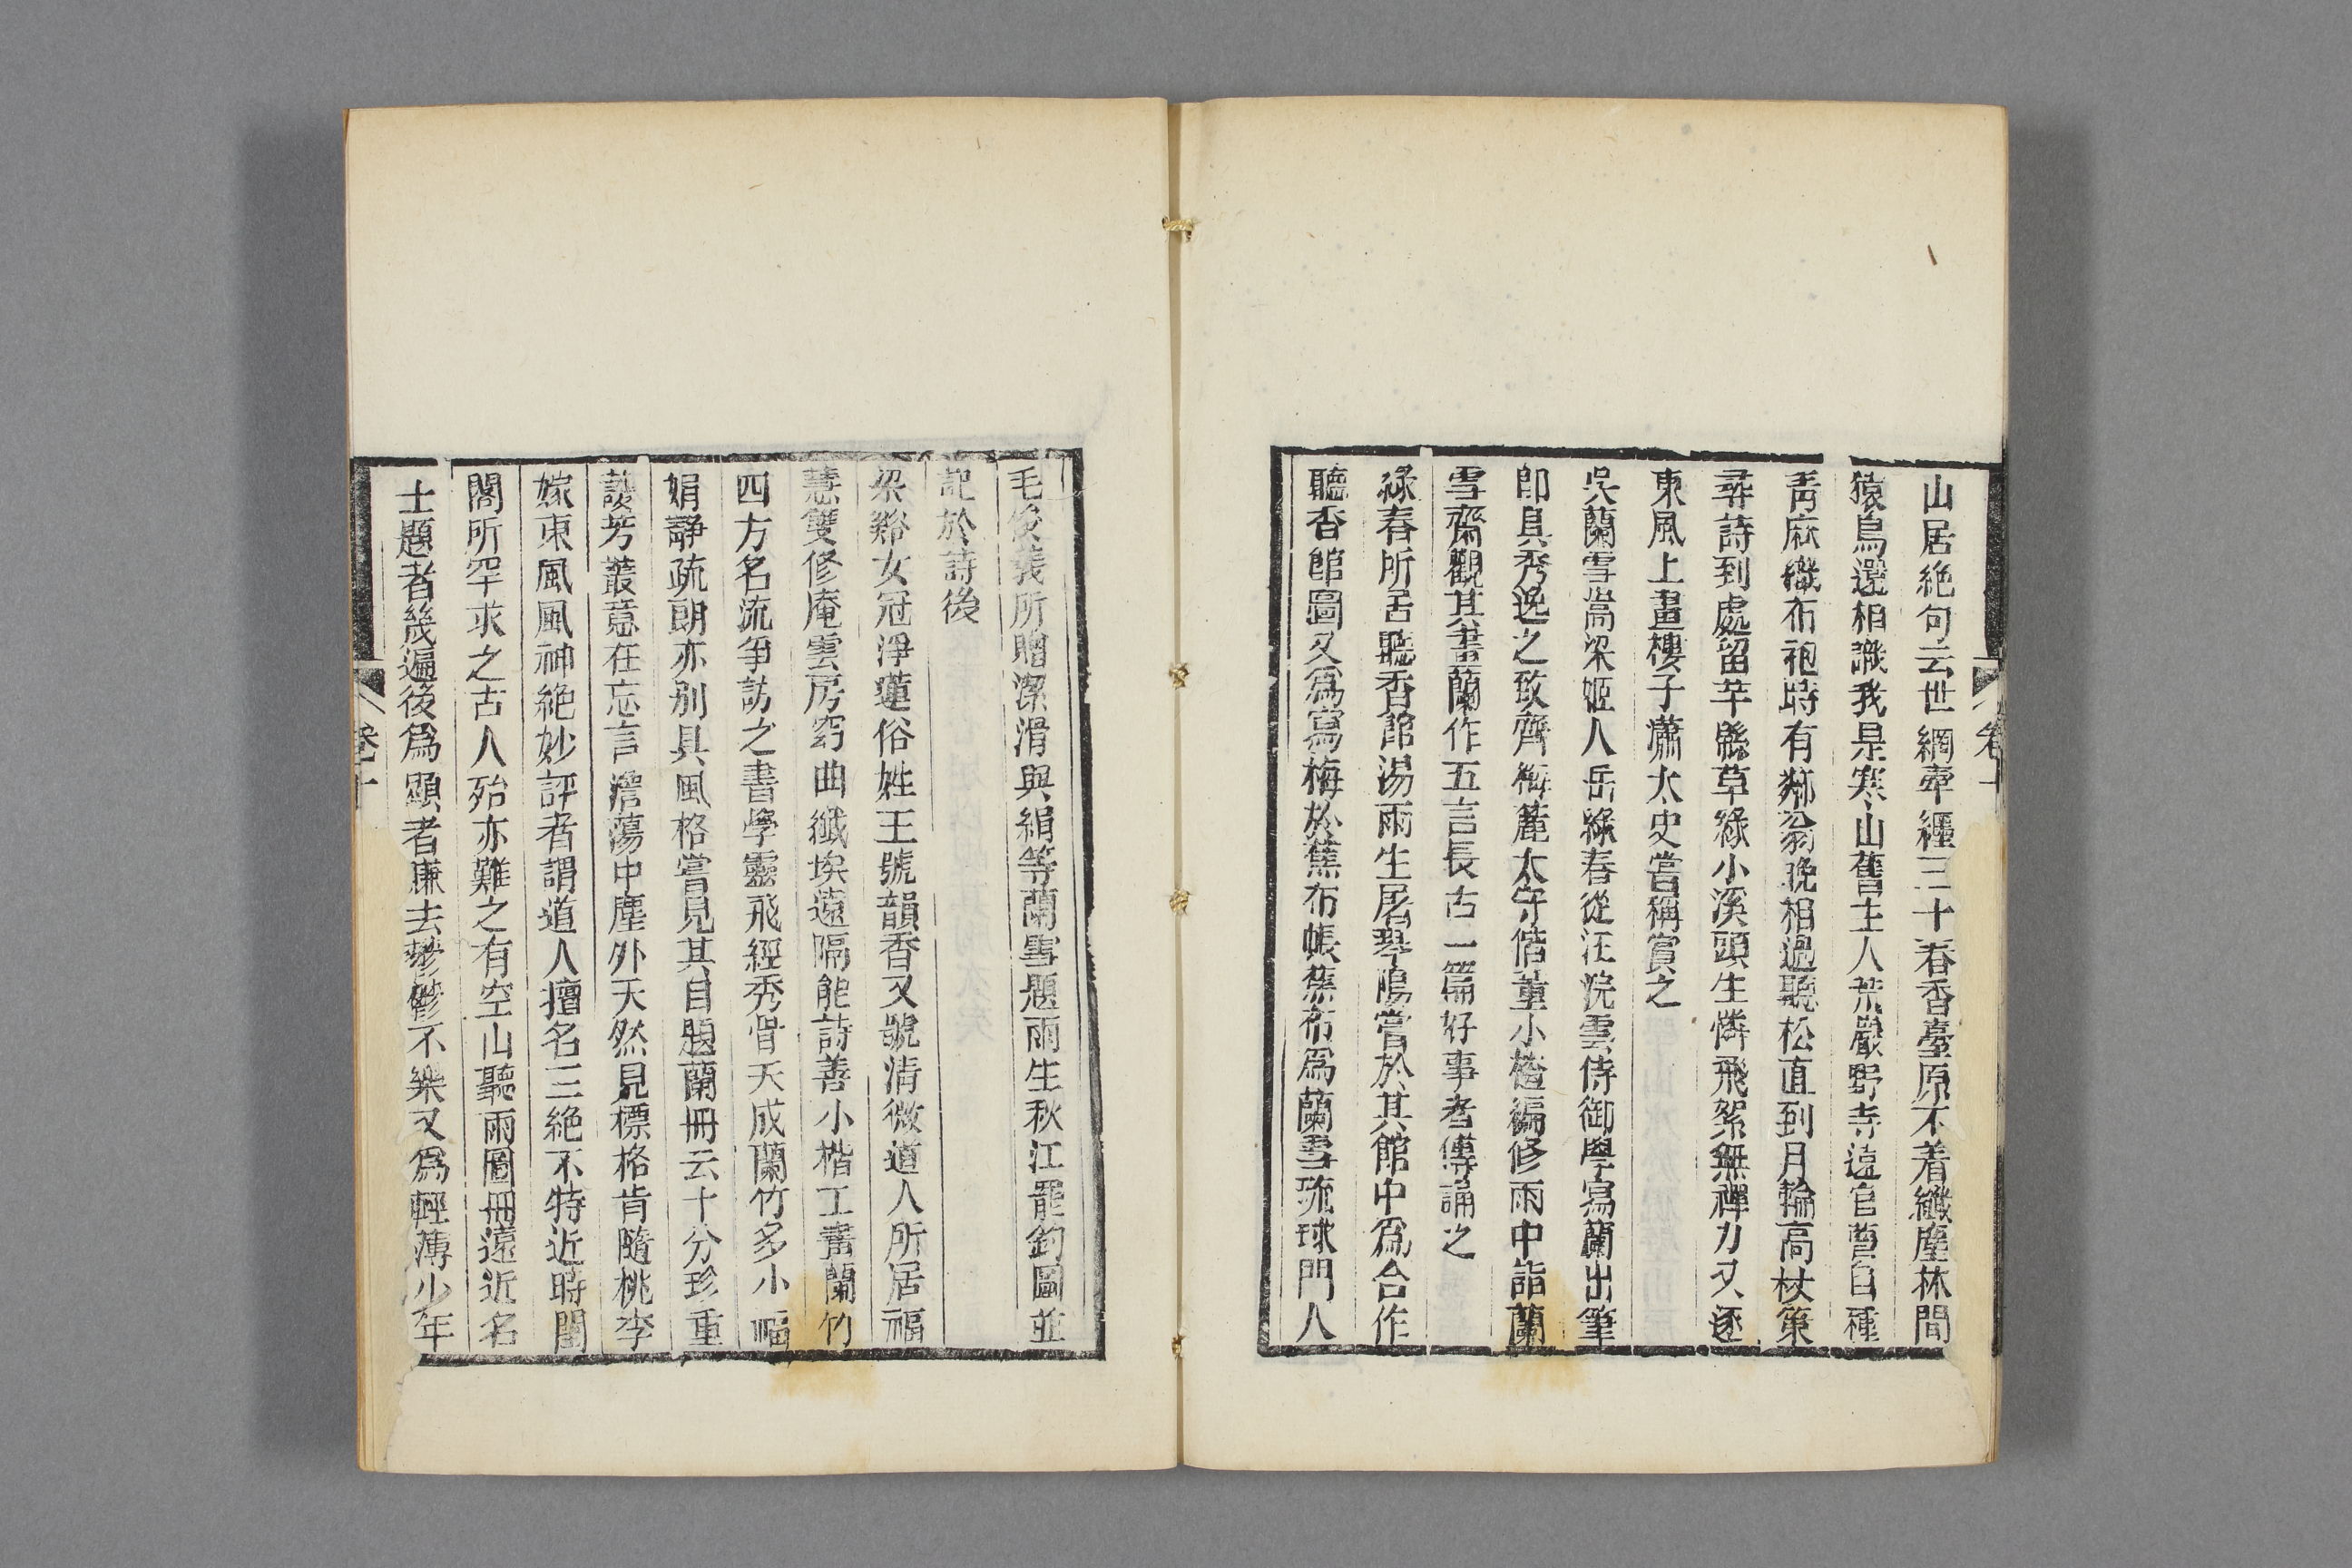 山居絶句云世網牽纒三十春香臺原不着纖塵林間
猿鳥還相識我是寒山舊主人荒巖野寺遠官曹自種
靑麻織布袍時有鄰翁晚相過聽松直到月輪高杖策
尋詩到處留芊緜草綠小溪頭生憐飛絮無禪力又逐
東風上畫樓子瀟太史嘗稱賞之
吳蘭雪嵩梁姬人岳綠春從汪浣雲侍御學寫蘭出筆
卽具秀逸之致齊梅麓太守偕董小槎編修雨中詣蘭
雪齋觀其畫蘭作五言長古一篇好事者傳誦之
綠春所居聽香館湯雨生屠琴隖嘗於其館中爲合作
聽香館圖又爲寫梅於蕉布帳蕉布爲蘭雪琉球門人
卷十
毛俊義所贈潔滑與絹等蘭雪題雨生秋江罷釣圖並
記於詩後
梁谿女冠淨蓮俗姓王號韻香又號淸微道人所居福
慧雙修庵雲房窈曲纖埃遠隔能詩善小楷工畫蘭竹
四方名流爭訪之書學靈飛經秀骨天成蘭竹多小幅
娟靜疏朗亦別具風格嘗見其自題蘭冊云十分珍重
護芳叢意在忘言澹蕩中塵外天然見標格肯隨桃李
嫁東風風神絶妙評者謂道人擅名三絶不特近時閨
閣所罕求之古人殆亦難之有空山聽雨圖冊遠近名
士題者幾遍後爲顯者廉去鬱鬱不樂又爲輕薄少年
卷十